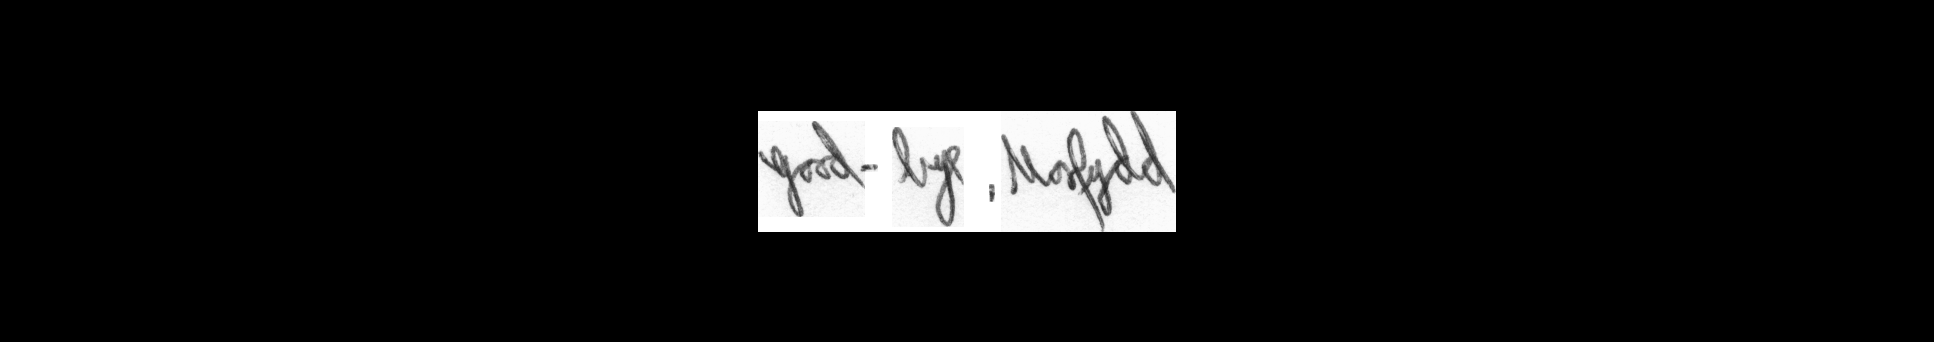 good- bye , Morfydd